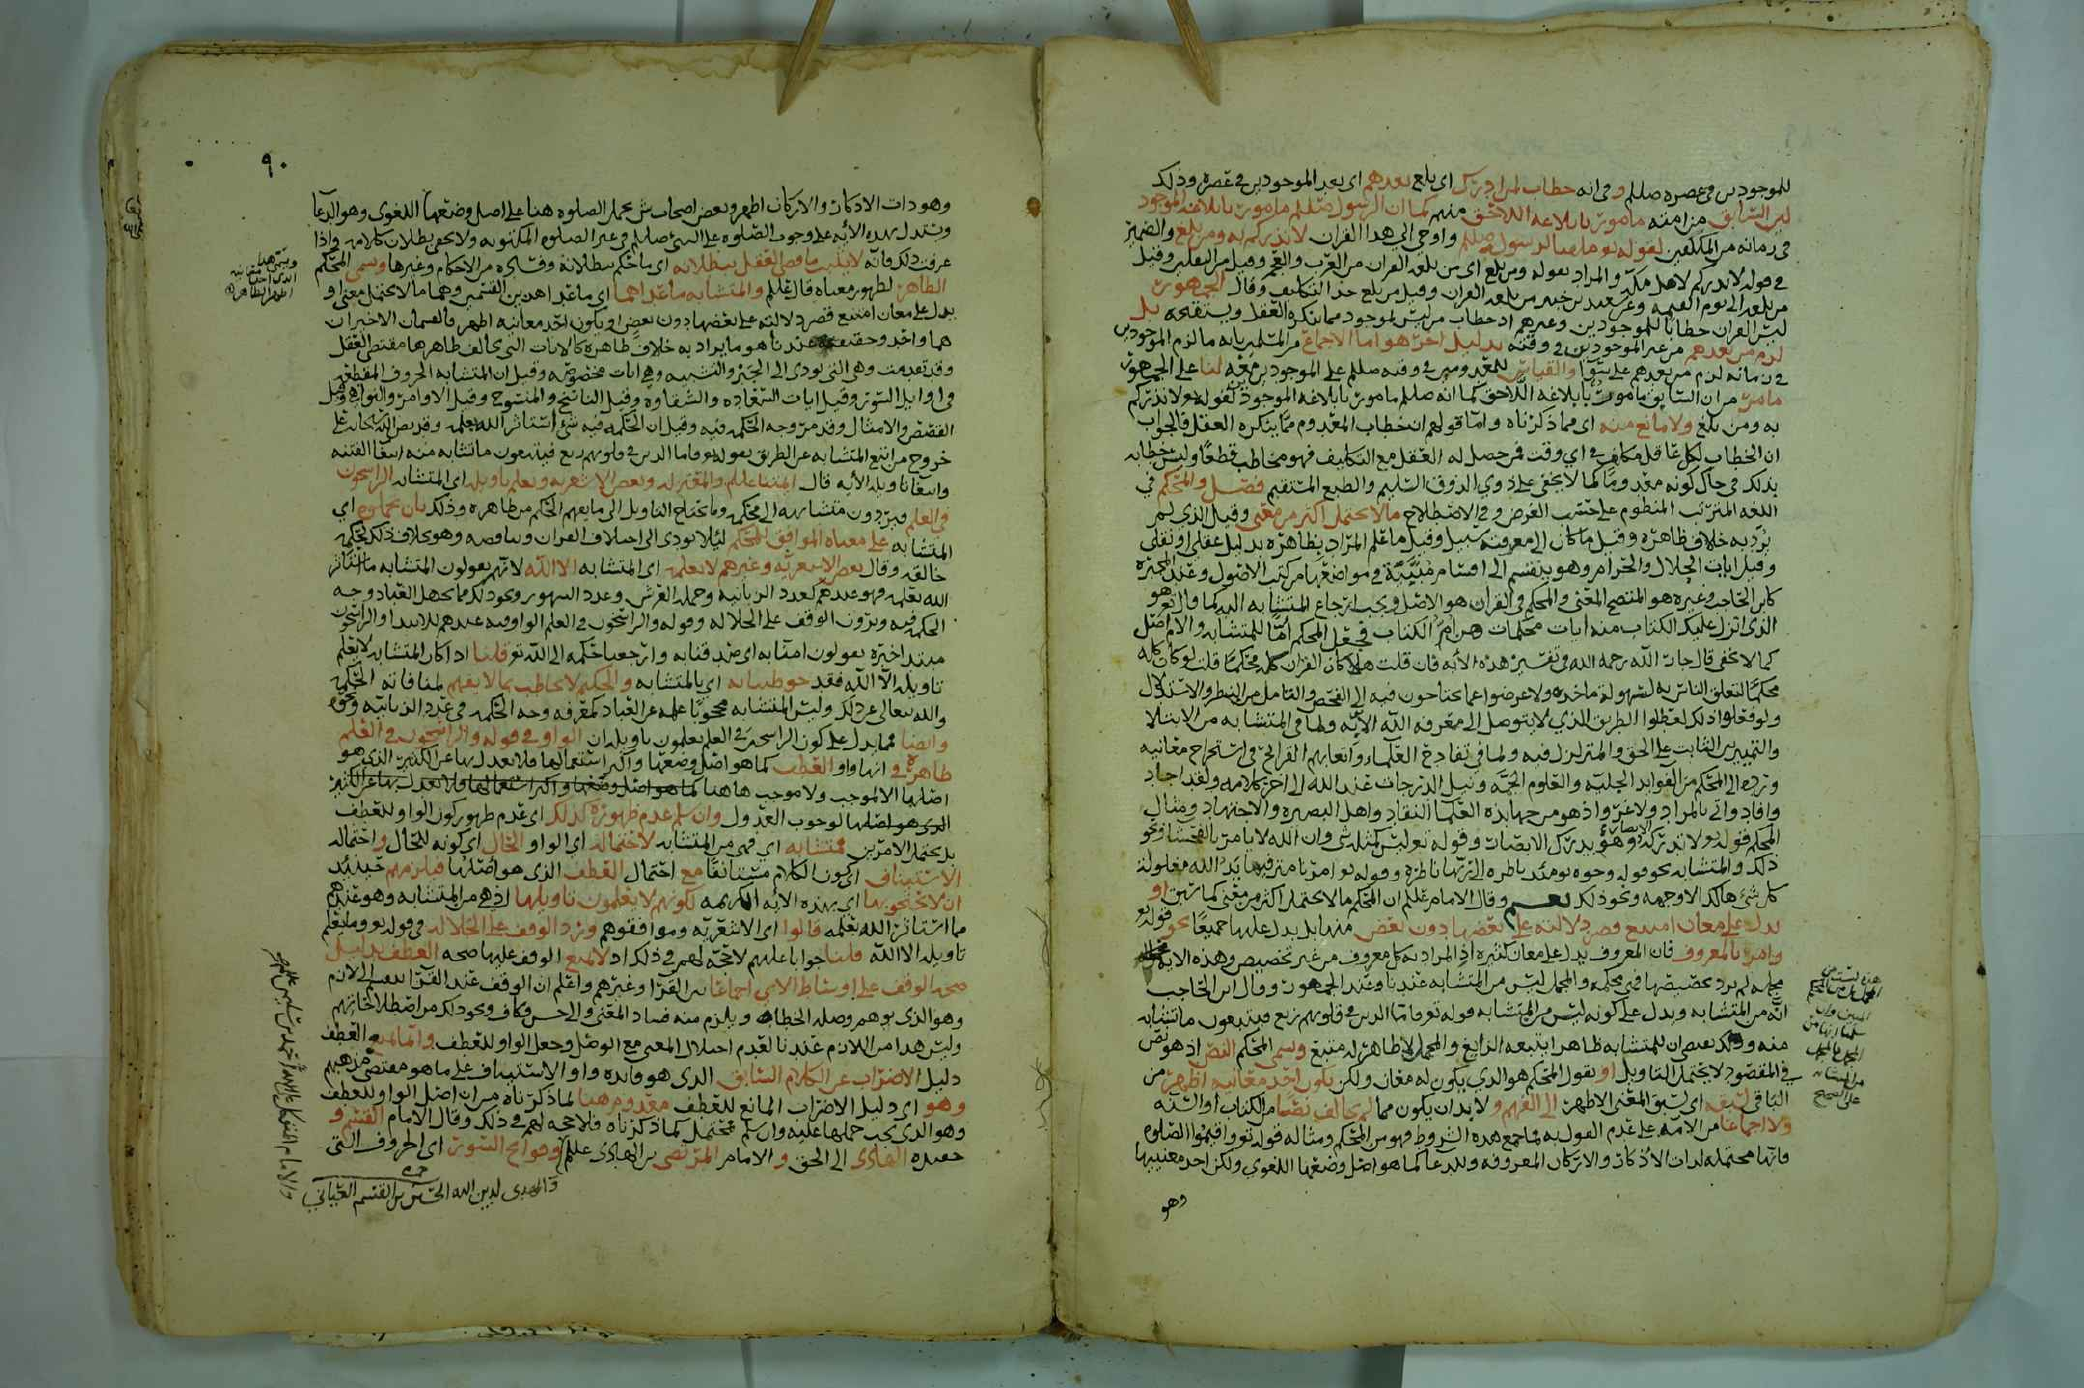 للموجودين في عصره صللم وفي انه خطاب لمن ادرك اي بلغ بعدهم اي بعد الموجودين في عصره وذلك
لان السابق من امته مامور بابلاغه اللاحق منهم كما ان الرسول صللم مامور بابلاغه الموجود
في زمانه من المكلفين لقوله تعالى واوحي الي هذا القران لانذركم به ومن بلغ والضمير
في قوله لانذركم لاهل مكة والمراد بقوله ومن بلغ اي من بلغه القران من العرب والعجم وقيل من الثقلين وقيل
من بلغه الى يوم القيمه وعن سعيد بن جبير من بلغه القران وقيل من بلغ حد التكليف وقال الجمهور
ليس القران خطابا للموجودين وغيرهم اذ خطاب من ليس بموجود مما ينكره العقل ويستقبحه بل
لزم من بعدهم من غير الموجودين في وقته بدليل اخر هو اما الاجماع من المسلمين بانه ما لزم الموجودين
في زمانه لزم من بعدهم على سوا والقياس للمعدومين في وقته صللم على الموجودين معه لنا على الجمهور
ما مر من ان السابق مامور بابلاغه اللاحق كما انه صللم مامور بابلاغه الموجود لقوله تعالى لانذركم
به ومن بلغ ولا مانع منه اي مما ذكرناه واما قولهم ان خطاب المعدوم مما ينكره العقل فالجواب
ان الخطاب لكل عاقل مكلف في اي وقت فمن حصل له العقل مع التكليف فهو مخاطب قطعا وليس خطابه
بذلك في حال كونه معدوما كما لا يخفى على ذوي الذوق السليم والطبع المستقيم فصل والمحكم في
اللغه المترتب المنظوم على حسب الغرض وفي الاصطلاح ما لا يحتمل اكثر من معنى وقيل الذي لم
يرد به خلاف ظاهره وقيل ما كان الى معرفته سبيل وقيل ما علم المراد بظاهره بدليل عقلي او نقلي
وقيل ايات الحلال والحرام وهو ينقسم الى اقسام مبينة في مواضعها من كتب الاصول وعند المجبره
كابن الحاجب وغيره هو المتضح المعنى والمحكم في القران هو الاصل ويجب ارجاع المتشابه اليه كما قال تعالى هو
الذي انزل عليك الكتاب منه ايات محكمات هن ام الكتاب فجعل المحكم اما للمتشابه والام الاصل
كما لا يخفى قال جار الله رحمه الله في تفسير هذه الايه فان قلت هلا كان القران كله محكما قلت لو كان كله
محكما لتعلق الناس به لسهولة ماخذه ولاعرضوا عما يحتاجون فيه الى الفحص والتامل من النظر والاستدلال
ولو فعلوا ذلك لعطلوا الطريق الذي لا يتوصل الى معرفه الله الا به ولما في المتشابه من الابتلا
والتمييز بين الثابت على الحق والمتزلزل فيه ولما في تقادح العلماء واتعابهم القرائح في استخراج معانيه
ورده الى المحكم من الفوايد الجليله والعلوم الجمه ونيل الدرجات عند الله الى اخر كلامه ولقد اجاد
وافاد واتى بالمراد ولا غرو اذ هو من جهابذه العلما النقاد واهل البصيره والاجتهاد ومثال
المحكم قوله تعالى لا تدركه الابصار وهو يدرك الابصار وقوله تعالى ليس كمثله شي وان الله لا يامر بالفحشا ونحو
ذلك والمتشابه نحو قوله وجوه يومئذ ناضره الى ربها ناظرة وقوله تعالى امرنا مترفيها يد الله مغلولة
كل شيء هالك الا وجهه ونحو ذلك نعم وقال الامام عللم ان المحكم ما لا يحتمل اكثر من معنى كما تبين او
يدل على معان امتنع قصر دلالته على بعضها دون بعض منها بل يدل عليها جميعا نحو قوله تعالى
وامر بالمعروف فان المعروف يدل على معان كثيره اذ المراد به كل معروف من غير تخصيص وهذه الايه
مجمله لم يرد تخصيصها فهي محكمه والمجمل ليس من المتشابه عندنا وعند الجمهور وقال ابن الحاجب
انه من المتشابه ويدل على كونه ليس من المتشابه قوله تعالى فاما الذين في قلوبهم زيغ فيتبعون ما تشابه
منه وذلك يقضي ان للمتشابه ظاهرا يتبعه الزايغ والمجمل لا ظاهر له متبع وسمي المحكم النص اذ هو نص
في المقصود لا يحتمل التاويل او نقول المحكم هو الذي يكون له معان ولكن يكون احد معانيه اظهر من
الباقي لسبقه اي لسبق المعنى الاظهر الى الفهم ولا بد ان يكون مما لم يخالف نصا من الكتاب او السنه
ولا اجماعا من الامه على عدم القول به فما جمع هذه الشروط فهو من المحكم ومثاله قوله تعالى واقيموا الصلوه
فانها محتملة لذات الاذكار والاركان المعروفه وللدعا كما هو اصل وضعها اللغوي ولكن احد معنييها
وهو
٩٠
وهو ذات الاذكار والاركان اظهر وبعض اصحاب ش يحمل الصلوه هنا على اصل وضعها اللغوي وهو الدعا
ويستدل بهذه الايه على وجوب الصلوه على النبي صللم في غير الصلوه المكتوبه ولا يخفى بطلان كلامه واذا
عرفت ذلك فانه لا يثبت ما قضى العقل ببطلانه اي ما حكم ببطلانه وقبحه من الاحكام وغيرها وسمي المحكم
الظاهر لظهور معناه قال عللم والمتشابه ما عداهما اي ما عدا هذين القسمين وهما ما لا يحتمل معنى او
يدل على معان امتنع قصر دلالته على بعضها دون بعض او يكون احد معانيه اظهر فالقسمان الاخيران
هما واحد وحقيقته عندنا هو ما يراد به خلاف ظاهره كالايات التي يخالف ظاهرها مقتضى العقل
وقد تقدمت وهي التي تودي الى الجبر والتشبيه وهي ايات مخصوصه وقيل ان المتشابه الحروف المقطعه
في اوايل السور وقيل ايات السعاده والشقاوه وقيل الناسخ والمنسوخ وقيل الاوامر والنواهي وقيل
القصص والامثال وقد مر وجه الحكمه فيه وقيل ان الحكمه فيه شي استاثر الله بعلمه وقد نص الله سبحانه على
خروج من اتبع المتشابه عن الطريق بقوله تعالى فاما الذين في قلوبهم زيغ فيتبعون ما تشابه منه ابتغا الفتنه
وابتغا تاويله الايه قال ايمتنا عللم والمعتزله وبعض الاشعريه ويعلم تاويله اي المتشابه الراسخون
في العلم فيردون متشابهه الى محكمه وما يحتاج التاويل الى ما يفهم الحكم من ظاهره وذلك بان يحملوه اي
المتشابه على معناه الموافق للمحكم ليلا يودي الى اختلاف القران وتناقضه وهو بخلاف ذلك لحكمه
خالقه وقال بعض الاشعريه وغيرهم لا يعلمه اي المتشابه الا الله لانهم يقولون المتشابه ما استاثر
الله بعلمه فهو عندهم كعدد الزبانيه وحمله العرش وعدد الشهور ونحو ذلك مما يجهل العباد وجه
الحكمه فيه ويرون الوقف على الجلاله وقوله والراسخون في العلم الواو فيه عندهم للابتدا والراسخون
مبتدا خبره يقولون امنا به اي صدقنا به وارجعنا حكمه الى الله تعالى قلنا اذا كان المتشابه لا يعلم
تاويله الا الله فقد خوطبنا به اي بالمتشابه والحكيم لا يخاطب بما لا يفهم لمنافاته الحكمه
والله تعالى عن ذلك وليس المتشابه محجوبا علمه عن العباد كمعرفه وجه الحكمه في عدد الزبانيه ونحوه
وايضا فما يدل على كون الراسخين في العلم يعلمون تاويله ان الواو في قوله والراسخون في العلم
ظاهره في انها واو العطف كما هو اصل وضعها واكثر استعمالها فلا يعدل بها عن الكثير الذي هو
اصلها الا لموجب ولا موجب هاهنا كما هو اصل وضعها واكثر استعمالها فلا يعدل بها عن الكثير
الذي هو اصلها لوجوب العدول وان سلم عدم ظهوره كذلك اي عدم ظهور كون الواو للعطف
بل يحتمل الامرين فمتشابه اي فهي من المتشابه لاحتماله اي الواو الحال اي كونه للحال واحتماله
الاستيناف اي كون الكلام مستانفا مع احتمال العطف الذي هو اصلها فيلزمهم حينئذ
ان لا يحتجوا بها اي بهذه الايه الكريمه لكونهم لا يعلمون تاويلها اذ هي من المتشابه وهو عندهم
مما استاثر الله بعلمه قالوا اي الاشعريه وموافقوهم ورد الوقف على الجلاله في قوله تعالى وما يعلم
تاويله الا الله قلنا جوابا عليهم لا حجه لهم في ذلك اذ لا يمنع الوقف عليها صحه العطف بدليل
صحه الوقف على اوساط الاي اجماعا من القرا وغيرهم واعلم ان الوقف عند القرا ينقسم الى لازم
وهو الذي يوهم وصله الخطا ويلزم منه فساد المعنى والى حسن وكاف ونحو ذلك من اصطلاحاتهم
وليس هذا من اللازم عندنا لعدم اختلال المعنى مع الوصل وجعل الواو للعطف والمانع للعطف
دليل الاضراب عن الكلام السابق الذي هو فايده واو الاستيناف على ما هو مقتضى مذهبهم
وهو اي دليل الاضراب المانع للعطف معدوم هنا لما ذكرناه من ان اصل الواو للعطف
وهو الذي يجب حملها عليه وان سلم فمحتمل كما ذكرناه فلا حجه لهم في ذلك وقال الامام القسم و
حفيده الهادي الى الحق و الامام المرتضى بن الهادي عللم وفواتح السور اي الحروف التي
والمهدى لدين الله الحسين بن القسم العياني